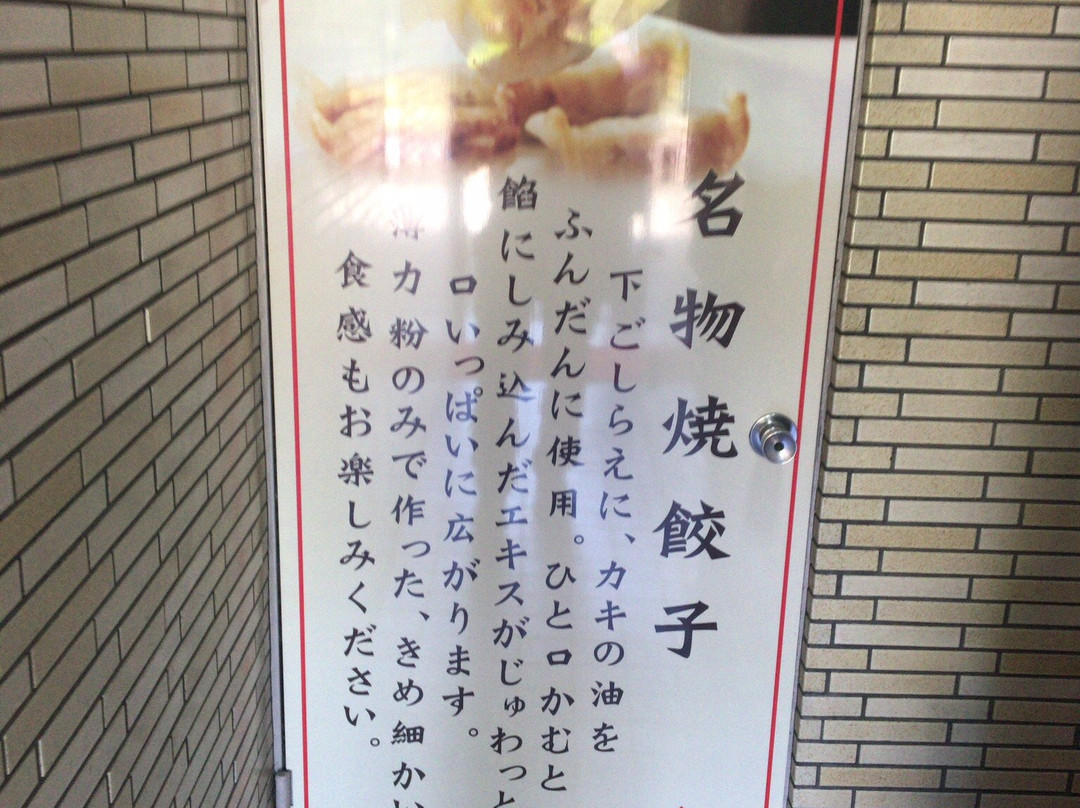 名物焼餃子
下ごしらえに、カキの油を
ふんだんに使用。ひと口かむと
餡にしみ込んだエキスがじゅわっと
口いっぱいに広がります。
薄力粉のみで作った、きめ細かい
食感もお楽しみください。